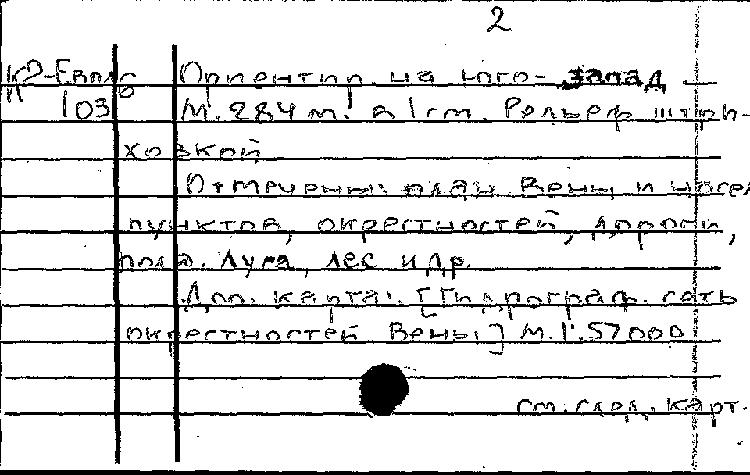 2
К2-Европ Ориентир. на юго-запад
103 М. 284 м. в 1 см. Рельеф штри-
ховкой
Отмечены: план Вены и насел
пунктов, окрестностей, дороги,
поля, луга, лес и др.
Доп. карта: [Гидрограф. сеть
окрестностей Вены] М. 1:57000
см. след. карт.